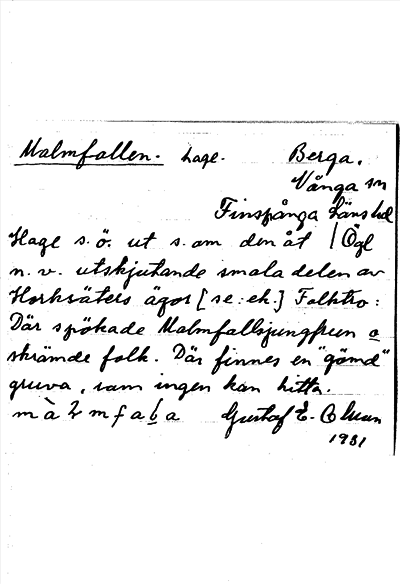 Malmfallen. hage. Berga.
Vånga sn
Finspånga läns hd
Hage s.ö. ut s.om den åt Ögl
n.v. utskjutande smala delen av
Horksäters ägor [se: ek.] Folktro:
Där spökade Malmfallsjungfrun o
skrämde folk. Där finnes en "gömd"
gruva, som ingen kan hitta.
Gustaf E.
1931